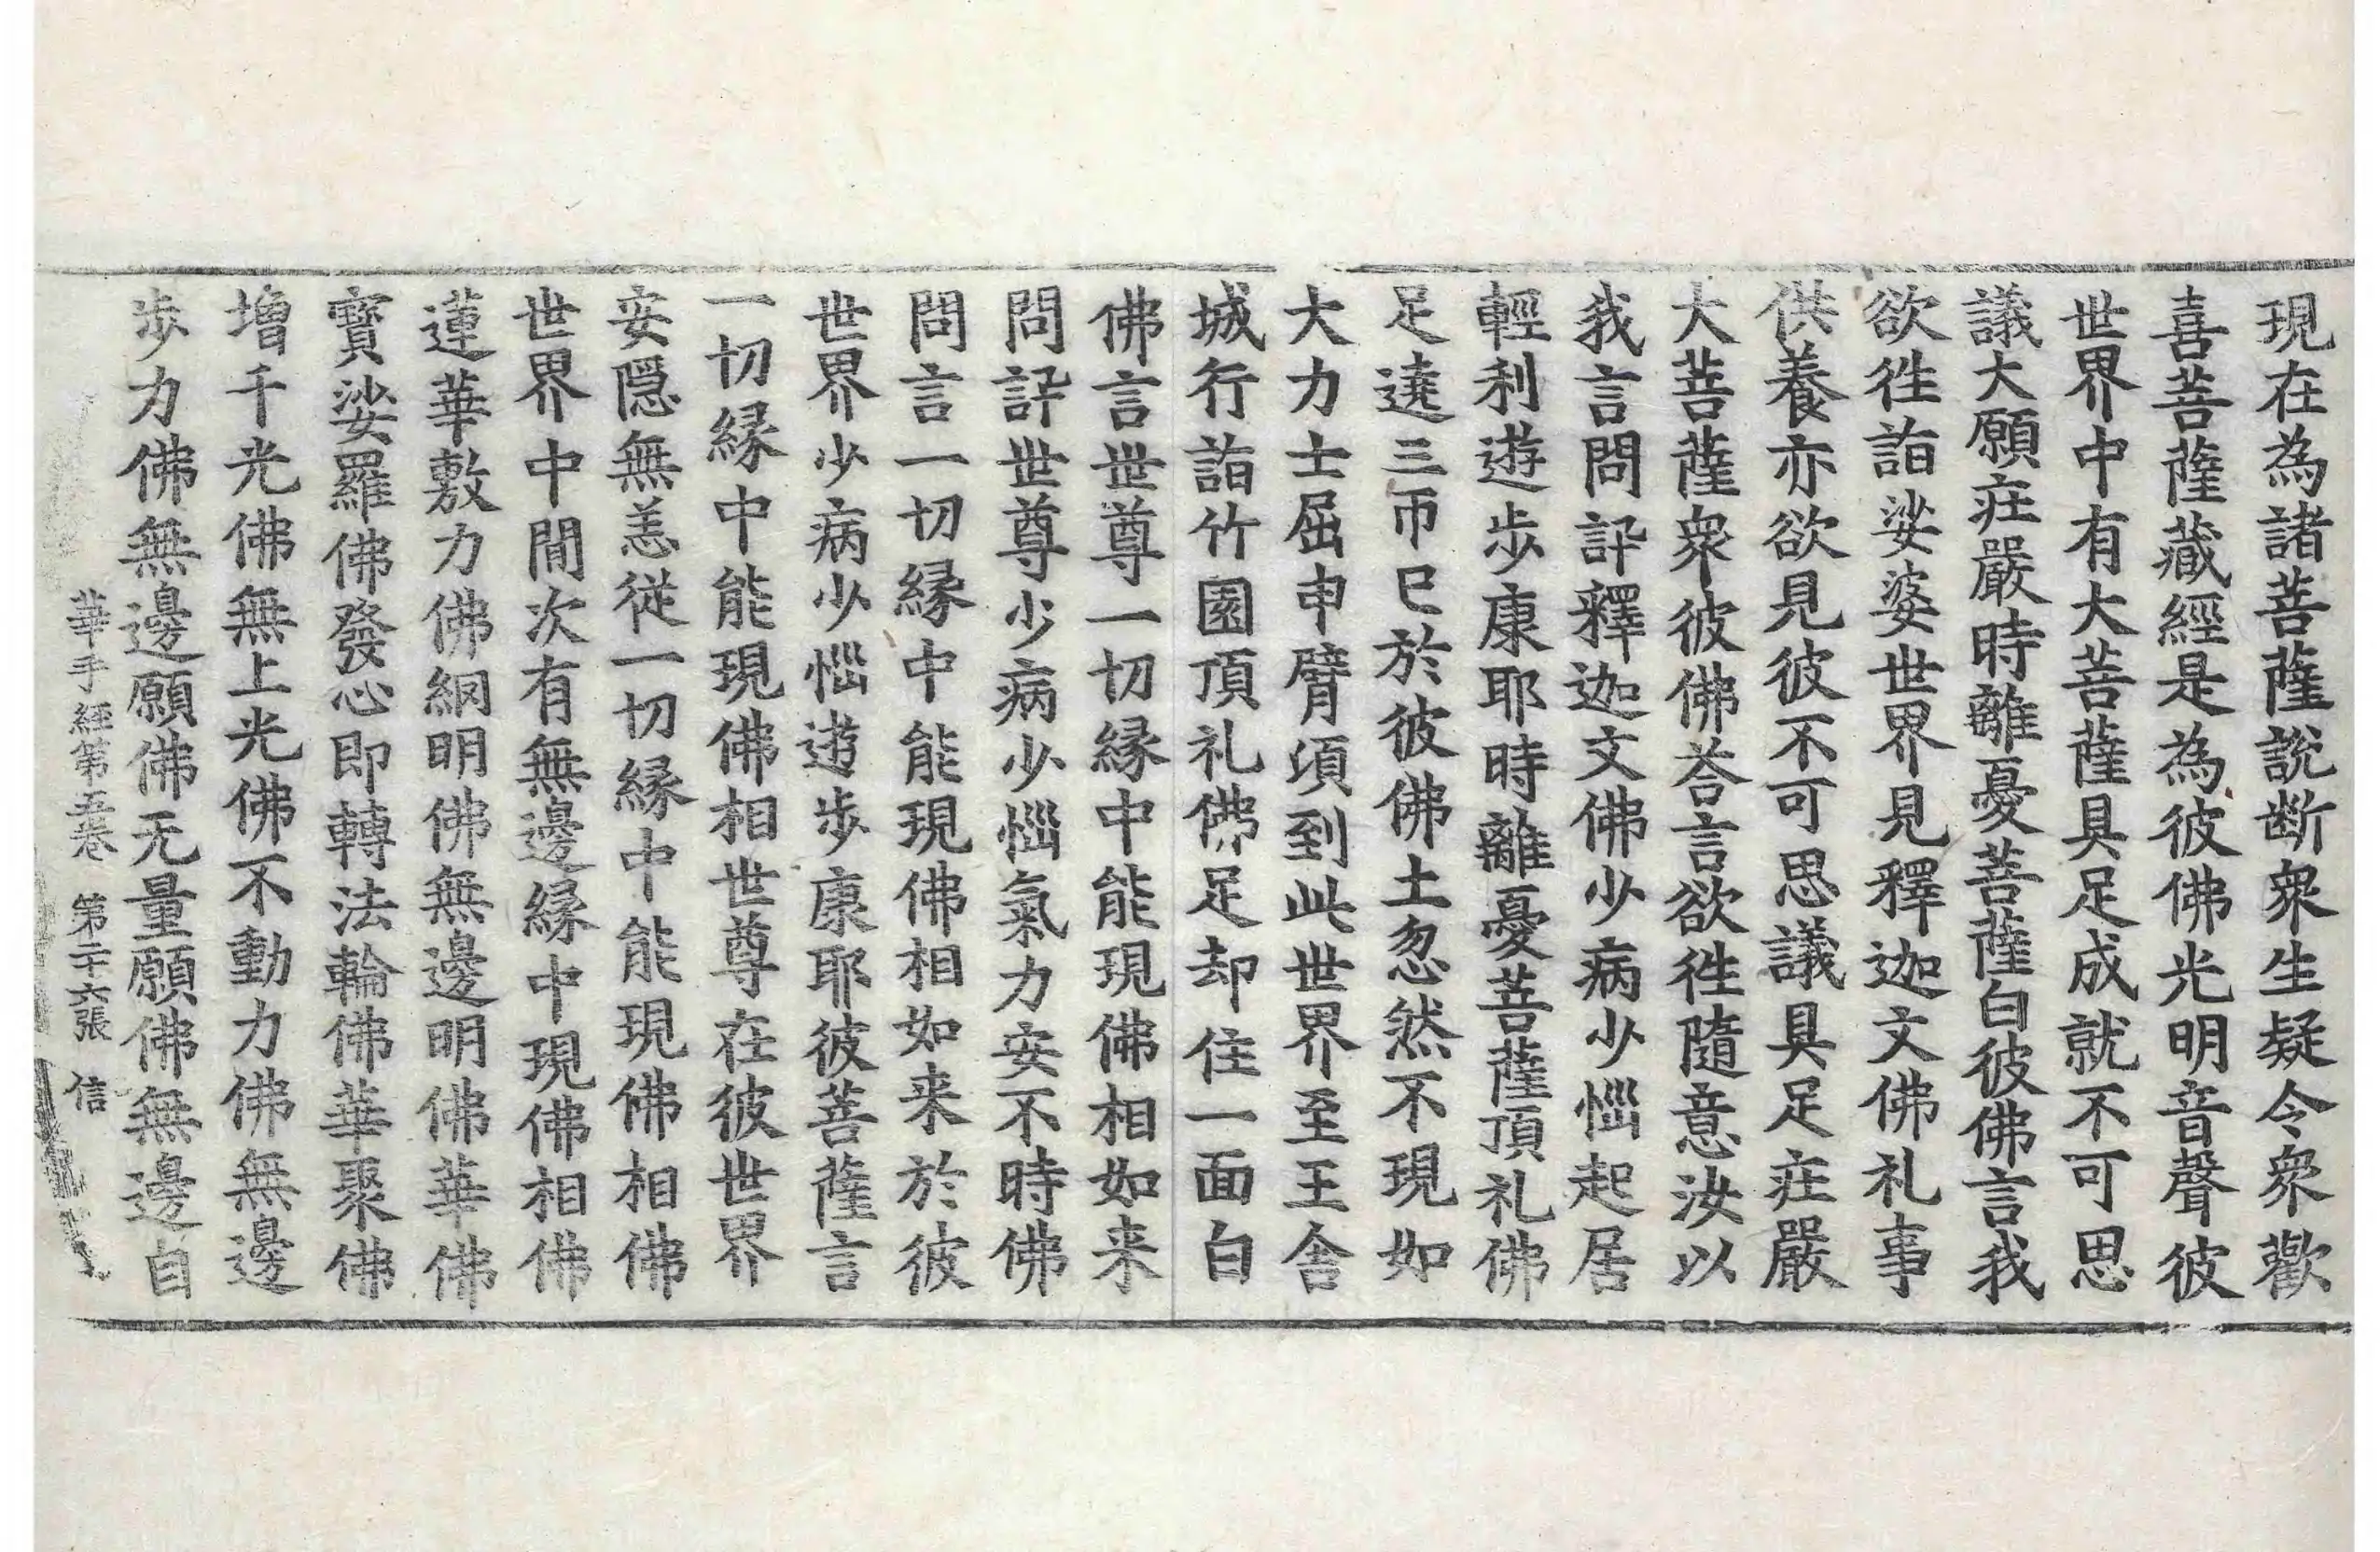 現在為諸菩薩說断衆生疑令衆歡
喜菩薩藏經是為彼佛光明音聲彼
世界中有大菩薩具足成就不可思
議大願庄嚴時離憂菩薩白彼佛言我
欲徃詣娑婆世界見釋迦文佛礼事
供養亦欲見彼不可思議具足庄嚴
大菩薩衆彼佛荅言欲徃隨意汝以
我言問訊釋迦文佛少病少惱起居
輕利遊步康耶時離憂菩薩頂礼佛
足遶三帀已於彼佛土忽然不現如
大力士屈申臂頃到此世界至王舍
城行詣竹園頂礼佛足却住一面白
佛言世尊一切縁中能現佛相如来
問訊世尊少病少惱氣力安不時佛
問言一切縁中能現佛相如来於彼
世界少病少惱遊步康耶彼菩薩言
一切縁中能現佛相世尊在彼世界
安隱無恙從一切縁中能現佛相佛
世界中間次有無邊縁中現佛相佛
蓮華敷力佛網明佛無邊明佛華佛
寶娑羅佛發心即轉法輪佛華聚佛
增千光佛無上光佛不動力佛無邊
步力佛無邊願佛无量願佛無邊自
華手經第五卷　第二十六張　信